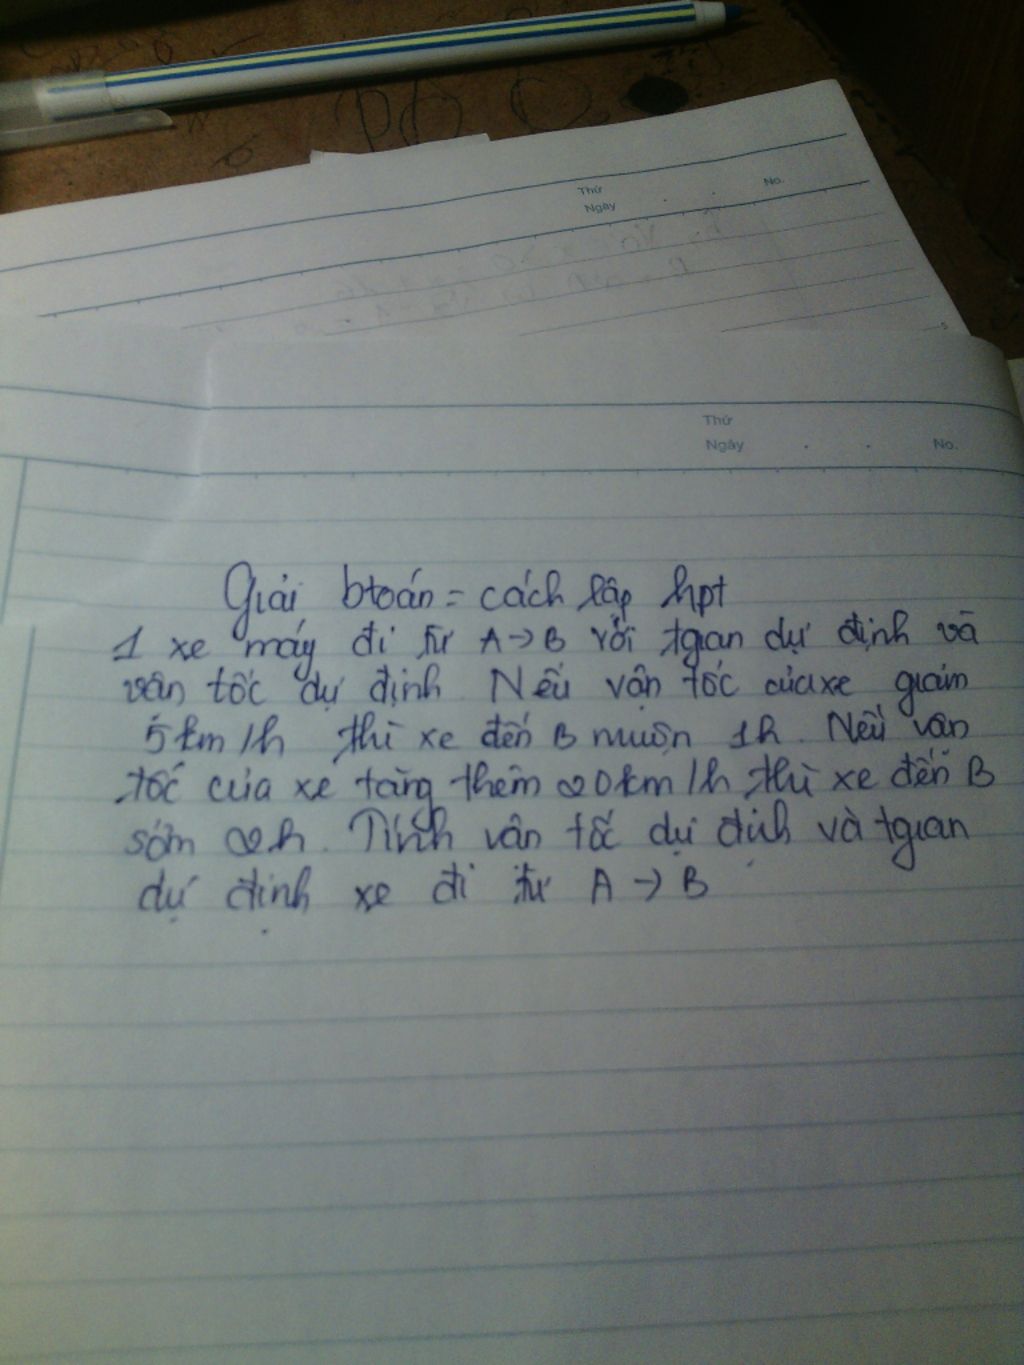 Thứ
Ngày . . No.
Thứ
Ngày . . No.
Giải btoán = cách lập hpt
1 xe máy đi từ A → B với tgian dự định và
vân tốc dự định. Nếu vận tốc của xe giảm
5 km/h thì xe đến B muộn 1h. Nếu vân
tốc của xe tăng thêm 20km/h thì xe đến B
sớm 2h. Tính vân tốc dự định và tgian
dự định xe đi từ A → B